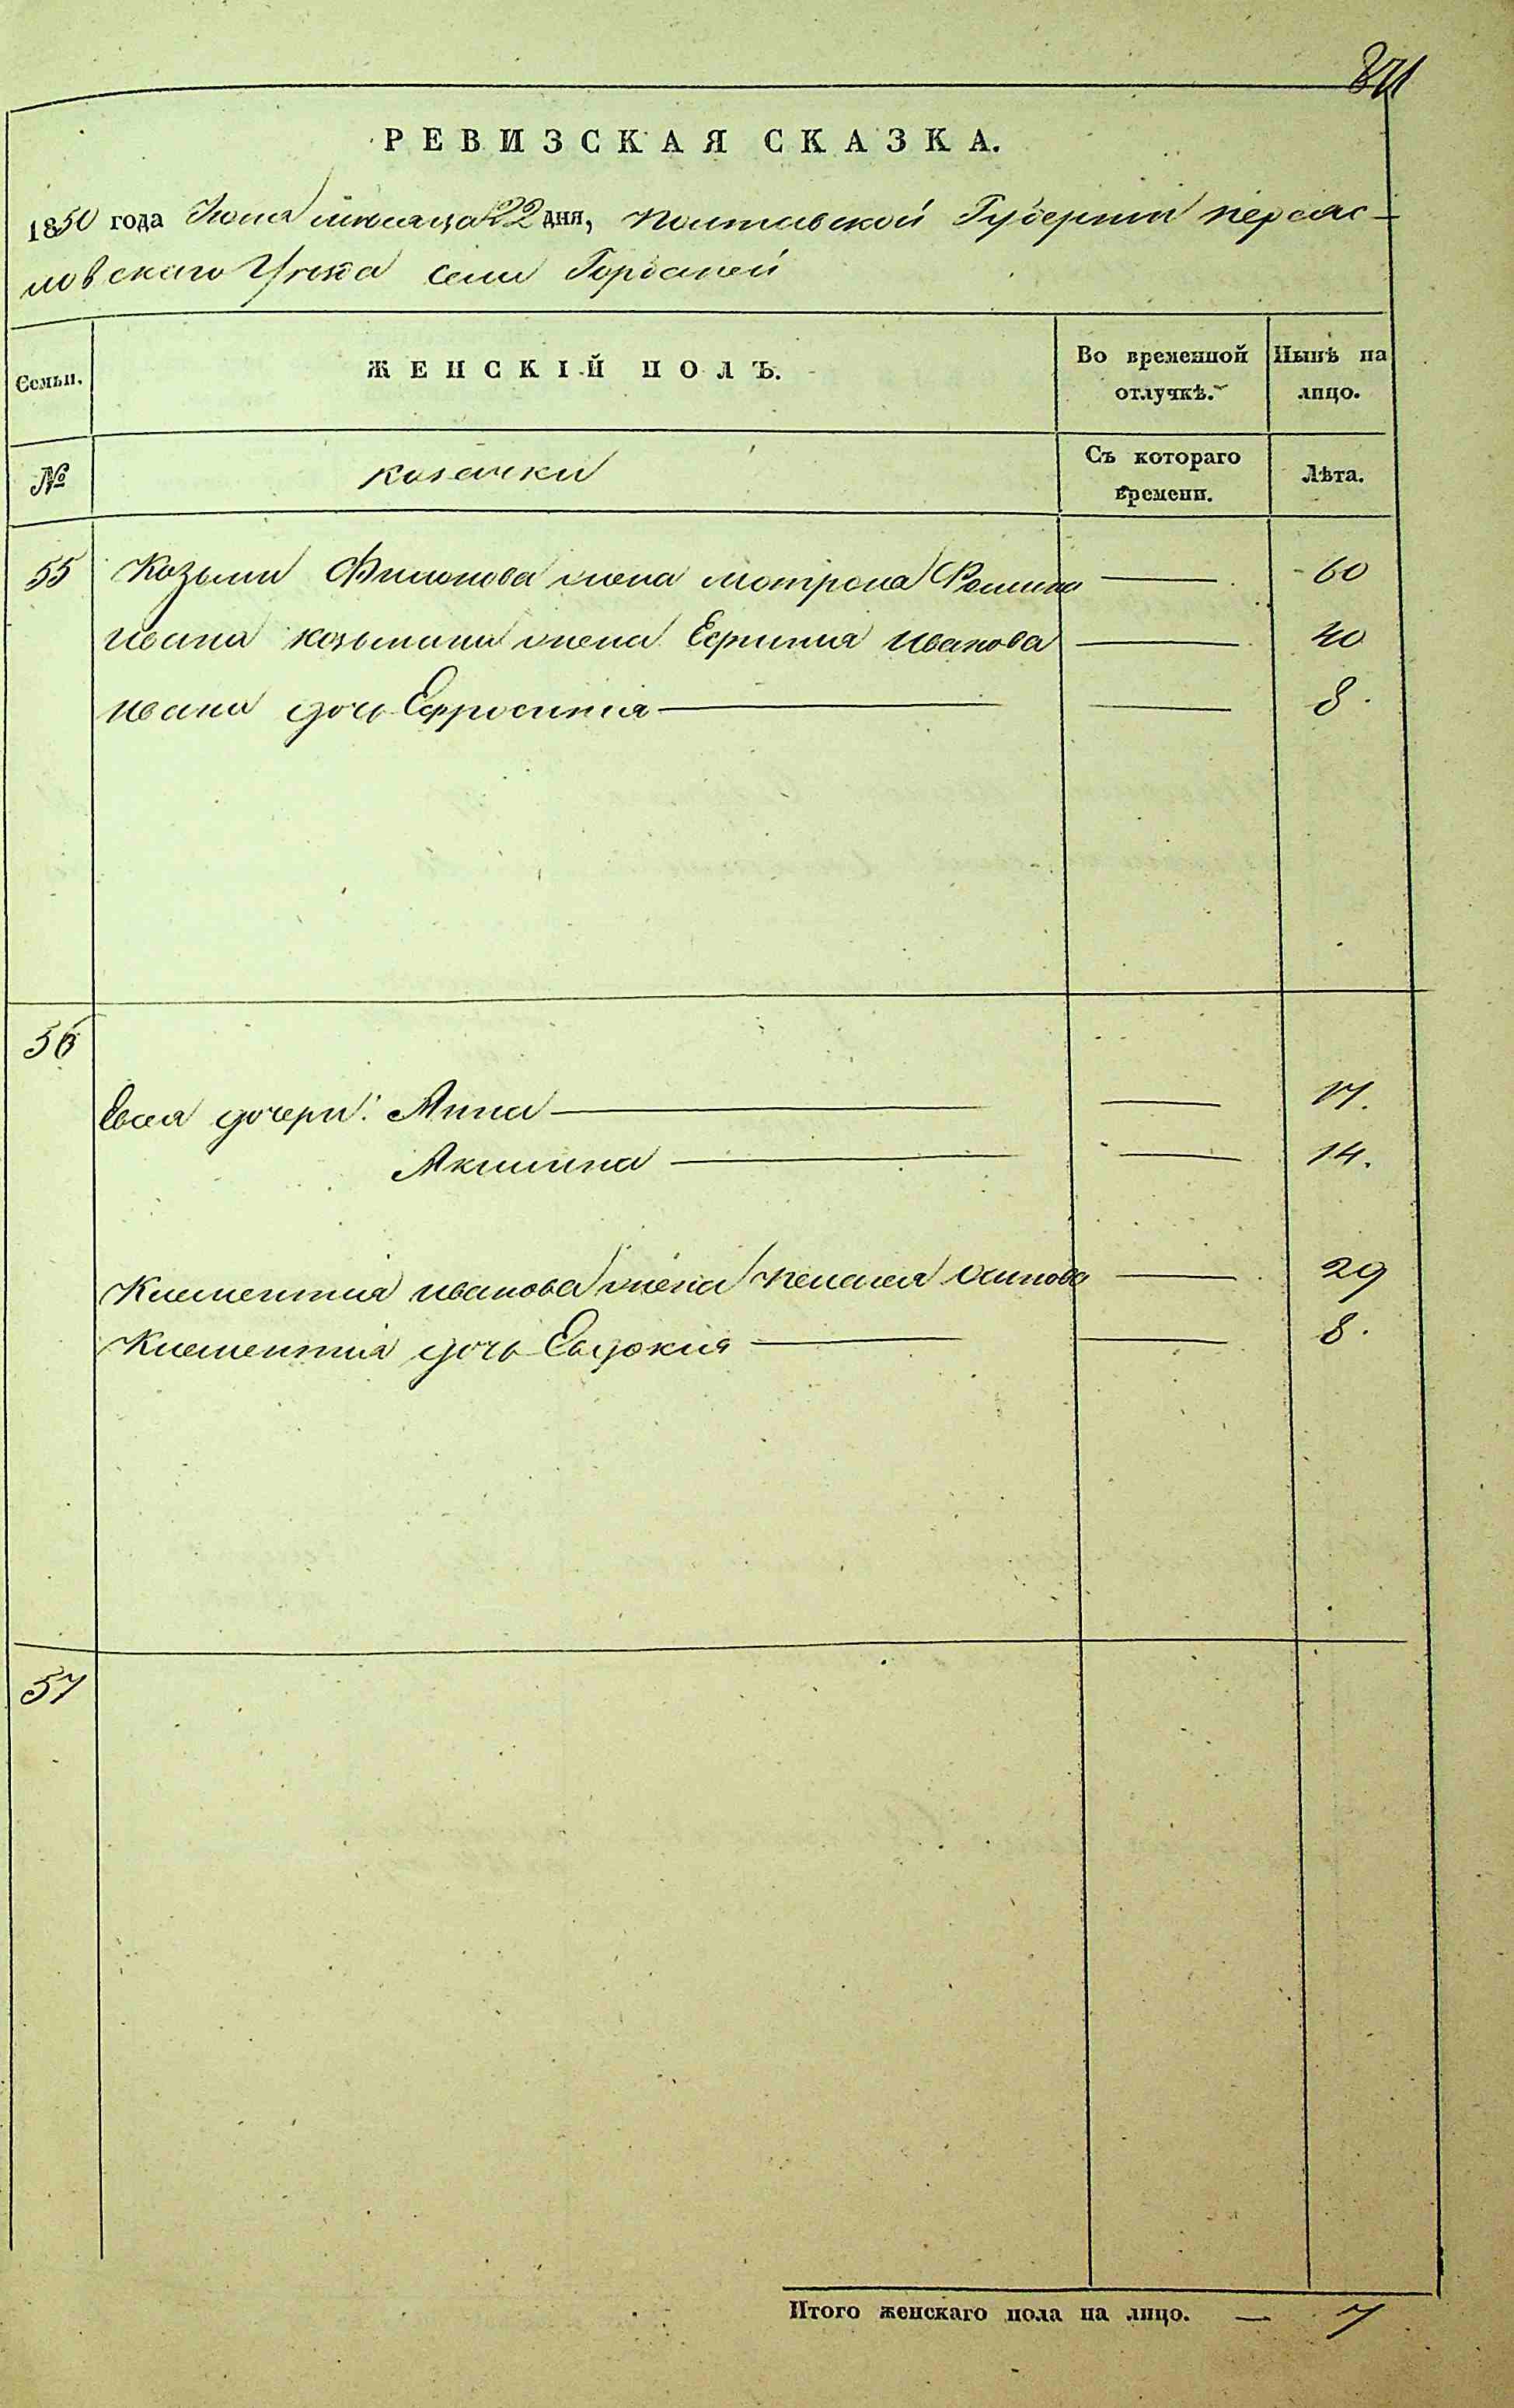 871
РЕВИЗСКАЯ СКАЗКА.
1850 года Июня месяца 22 дня, Полтавской Губернии переяс-
ловскаго Уезда села Горбаней
Семьи. ЖЕНСКІЙ ПОЛЪ. Во временной отлучкѣ. Нынѣ на лицо.
№ козачки Съ котораго времени. Лѣта.
55 Козьмы Филонова жена Мотрона Фомина — 60
Ивана Козьмина жена Ефимия Иванова — 40
Ивана дочь Ефросиния — — 8.
56
Евсея дочери: Анна — — 17.
Акилина — — 14.
Климентия Иванова жена Пелагея Осипова — 29
Климентия дочь Евдокия — — 8.
57
Итого женскаго пола на лицо. — 7